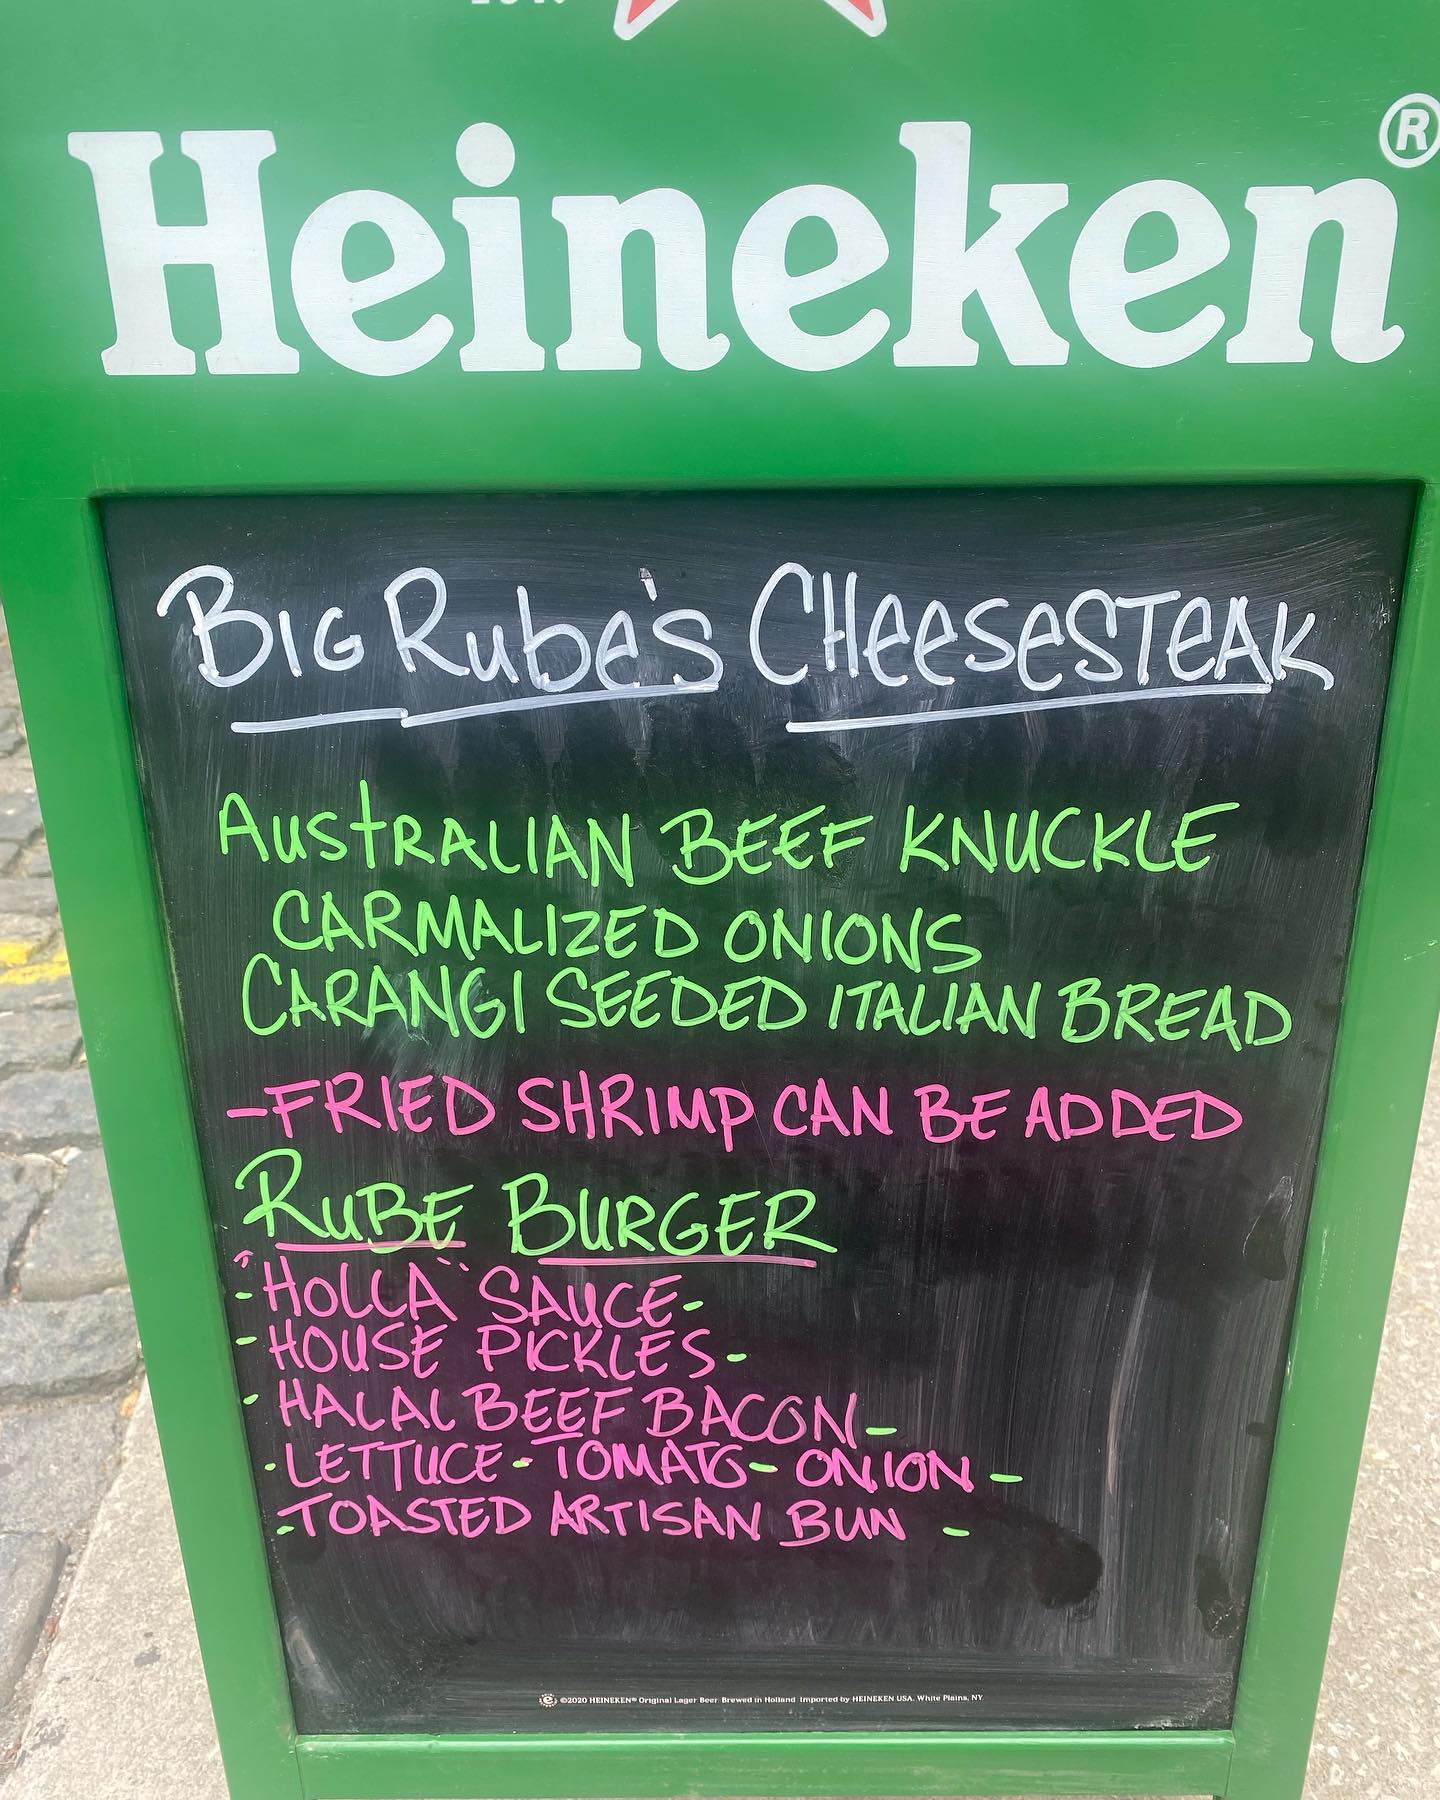 Heineken®
BIG Rube's CHeesesTeAK
AUStRALIAN BEEF KNUCKLE
CARMALIZED ONIONS
CARANGI SEEDED ITALIAN BREAD
-FRIED SHRIMP CAN BE ADDED
RUBE BURGER
-"HOLLA" SAUCE-
-HOUSE PICKLES-
-HALAL BEEF BACON-
-LETTUCE-TOMATO-ONION-
-TOASTED ARTISAN BUN-
©2020 HEINEKEN® Original Lager Beer Brewed in Holland Imported by HEINEKEN USA. White Plains, NY